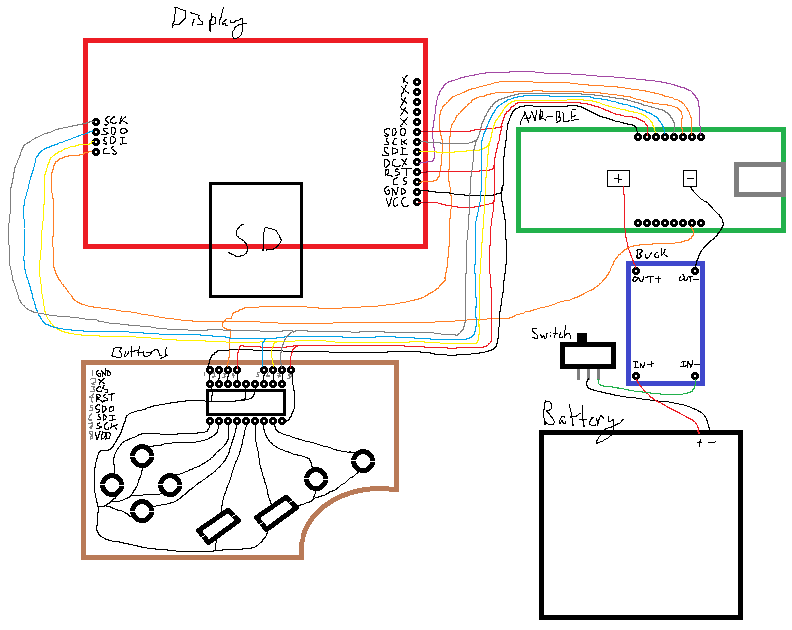 Display
X
X
X
X
X
SDO
SCK
SDI
DCX
RST
CS
GND
VCC
SCK
SDO
SDI
CS
SD
AVR-BLE
+
-
Buck
OUT+ OUT-
IN+ IN-
Switch
Battery
+ -
Buttons
1 GND
2 X
3 CS
4 RST
5 SDO
6 SDI
7 SCK
8 VDD